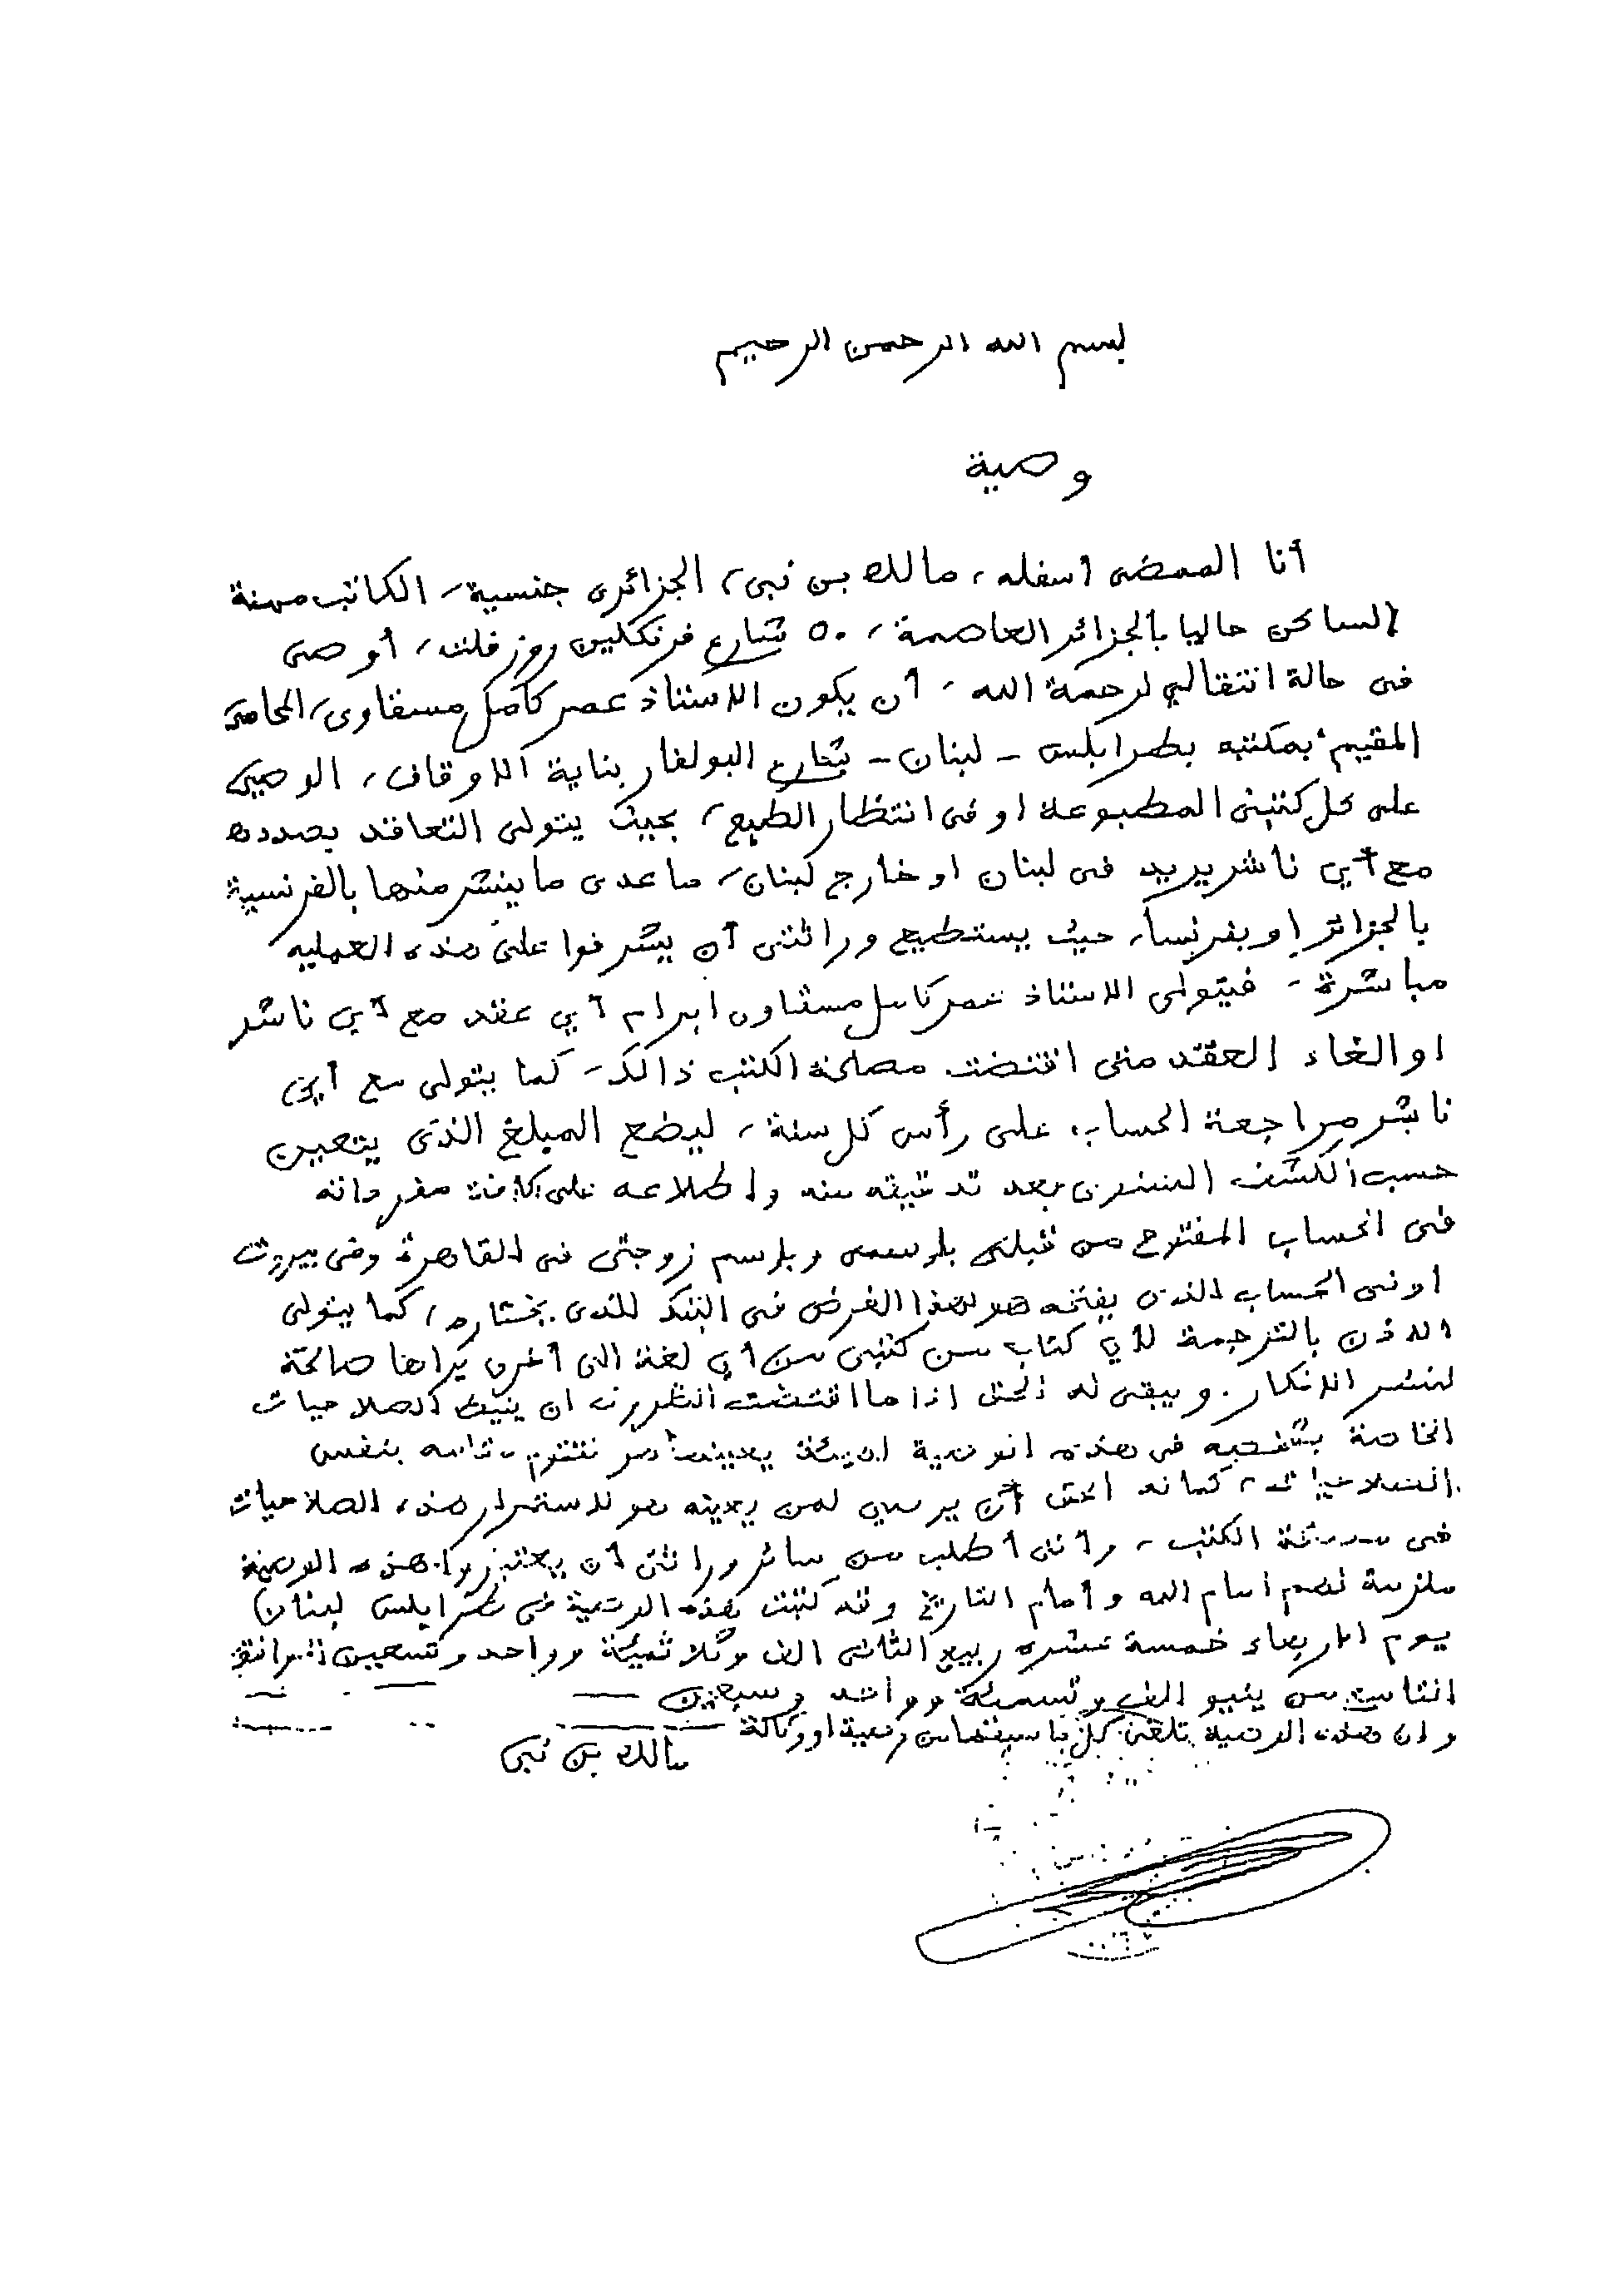 بسم الله الرحمن الرحيم
وصية
أنا الممضى أسفله، مالك بن نبى، الجزائرى جنسية، الكاتب مهنة
الساكن حاليا بالجزائر العاصمة، ٥٠ شارع فرنكلين روزفلت، أوصى
فى حالة انتقالي لرحمة الله، أن يكون الاستاذ عمر كامل مسقاوى، المحامى
المقيم بمكتبه بطرابلس - لبنان - شارع البولفار بناية الاوقاف، الوصي
على كل كتبى المطبوعة او فى انتظار الطبع، بحيث يتولى التعاقد بصددها
مع أي ناشر يريد فى لبنان او خارج لبنان، ما عدى ما ينشر منها بالفرنسية
بالجزائر او بفرنسا، حيث يستطيع وراثتى أن يشرفوا على هذه العمليه
مباشرة - فيتولى الاستاذ عمر كامل مسقاوى ابرام أي عقد مع أي ناشر
او الغاء العقد متى اقتضت مصلحة الكتب ذالك، كما يتولى مع أي
ناشر مراجعة الحساب على رأس كل سنة، ليضع المبلغ الذى يتعين
حسب الكشف السنوى بعد تدقيقه منه واطلاعه على كافة مفرداته
فى الحساب المفتوح من قبلى باسمى وباسم زوجتى فى القاهرة وفى بيروت
او فى الحساب الذى يفتحه هو لهذا الغرض فى البنك الذى يختاره، كما يتولى
الاذن بالترجمة لأي كتاب من كتبى من أي لغة الى أخرى يراها صالحة
لنشر الافكار. ويبقى له الحق اذا ما اقتضت الظروف ان ينيط الصلاحيات
الخاصة بشخصه فى هذه الوصية لهيئة يعينها هو تقوم مقامه بنفس
الصلاحيات، كما له الحق أن يوصي لمن يعينه هو لاستمرار هذه الصلاحيات
فى الكتب، وأننى أطلب من سائر وراثتى أن يعتبروا هذه الوصية
ملزمة لهم امام الله وأمام التاريخ وقد كتبت هذه الوصية فى طرابلس لبنان)
يوم الاربعاء خمسة عشره ربيع الثانى الف وثلاثمئة وواحد وتسعين الموافق
من ينيو الف وتسمئة وواحد وسبعين
وان هذه الوصية تلغى كل ما سبقها من وصية او وكالة
مالك بن نبى